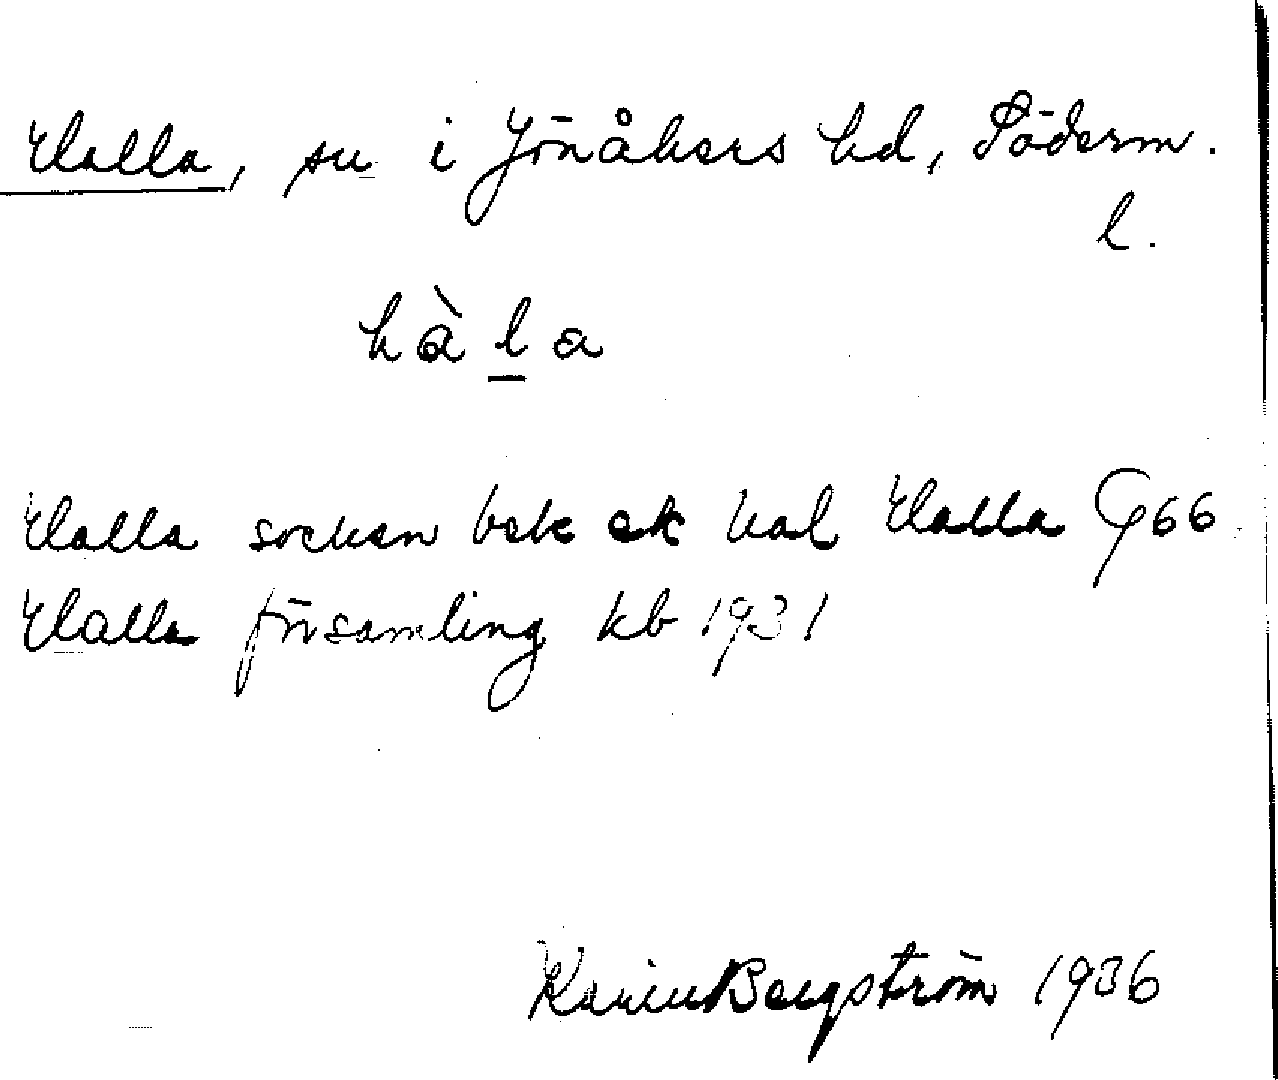 Halla, sn i Jönåkers hd, Söderm.
l.
hàla
Halla socken bek ek kal Halla G66
Halla församling kb 1931
Karin Bergström 1936